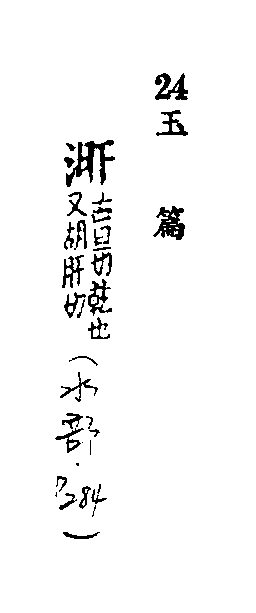 24 玉篇
古旦切乾也
又胡肝切
(水部.P284)